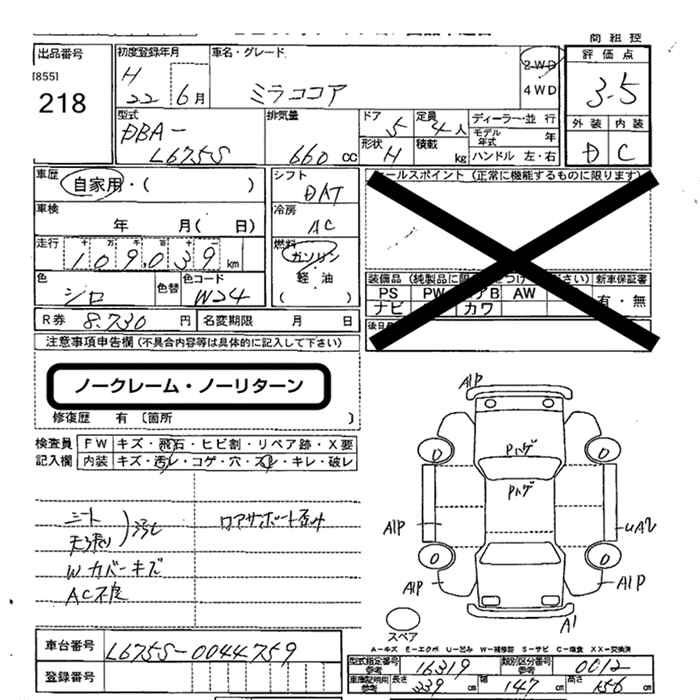 商組控
出品番号
[855]
218
初度登録年月
H
22 6月
車名・グレード
ミラココア
2WD
4WD
評価点
3.5
外装 内装
D C
型式
DBA-
L675S
排気量
660 cc
ドア 5
定員 4人
形状 H
積載 kg
ディーラー・並行
モデル年式 年
ハンドル 左・右
車歴
自家用・( )
シフト
DAT
車検
年 月( 日)
冷房
AC
走行
十 万 千 百 十 一
109,039 km
燃料
ガソリン
軽油
( )
色
シロ
色替
色コード
W24
R券 8,730 円
名変期限 月 日
セールスポイント (正常に機能するものに限ります)
装備品
新車保証書
PS PW エアB AW
ナビ カワ
有・無
注意事項申告欄 (不具合内容等は具体的に記入して下さい)
ノークレーム・ノーリターン
修復歴 有 〔箇所 〕
検査員 FW キズ・飛石・ヒビ割・リペア跡・X要
記入欄 内装 キズ・汚レ・コゲ・穴・スレ・キレ・破レ
シート
天張り
汚レ
Wカバーキズ
AC不良
ロアサポート歪み
A1P
Pハゲ
Pハゲ
A1P
UA2
A1P
A1P
A1
スペア
A-キズ E-エクボ U-凹み W-補修跡 S-サビ C-腐食 XX-交換済
車台番号 L675S-0044759
登録番号
型式指定番号 参考 16319
類別区分番号 参考 0012
車庫証明用 参考 長さ 339 cm 幅 147 cm 高さ 156 cm